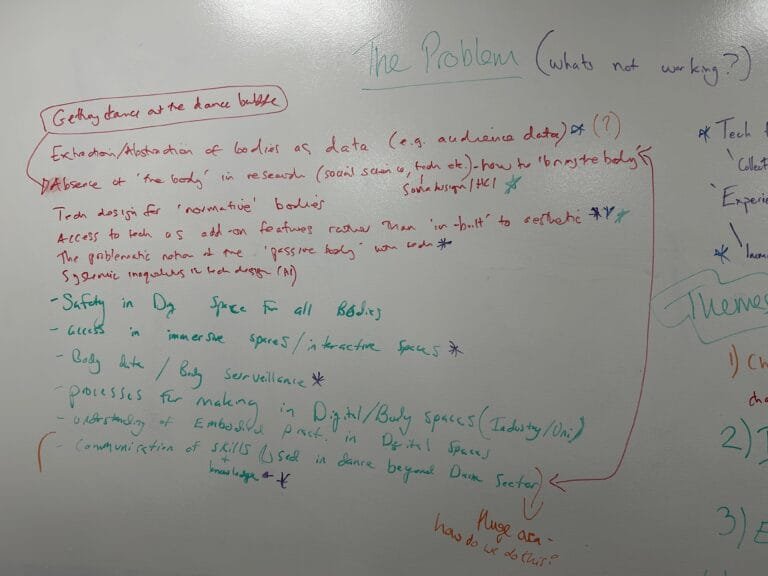 The Problem (whats not working?)
Getting dance out the dance bubble
Extraction/Abstraction of bodies as data (e.g. audience data) * (?)
Absence of 'the body' in research (social science, tech etc) - how to 'bring the body'
Soma design/HCI *
Tech design for 'normative' bodies
Access to tech as add-on features rather than 'in-built' to aesthetic * * *
The problematic notion of the 'passive body' with tech *
Systemic inequalities in tech design (AI)
- Safety in Dig Space for all Bodies
- access in immersive spaces/interactive spaces *
- Body data / Body surveillance *
- processes for making in Digital/Body spaces (Industry/Uni)
- understanding of Embodied pract. in Digital Spaces
- Communication of skills used in dance beyond Dance Sector
+ knowledge *
Huge area -
how do we do this?
* Tech
Collect
Experie
*
Themes
1) Ch
cha
2)
3) E